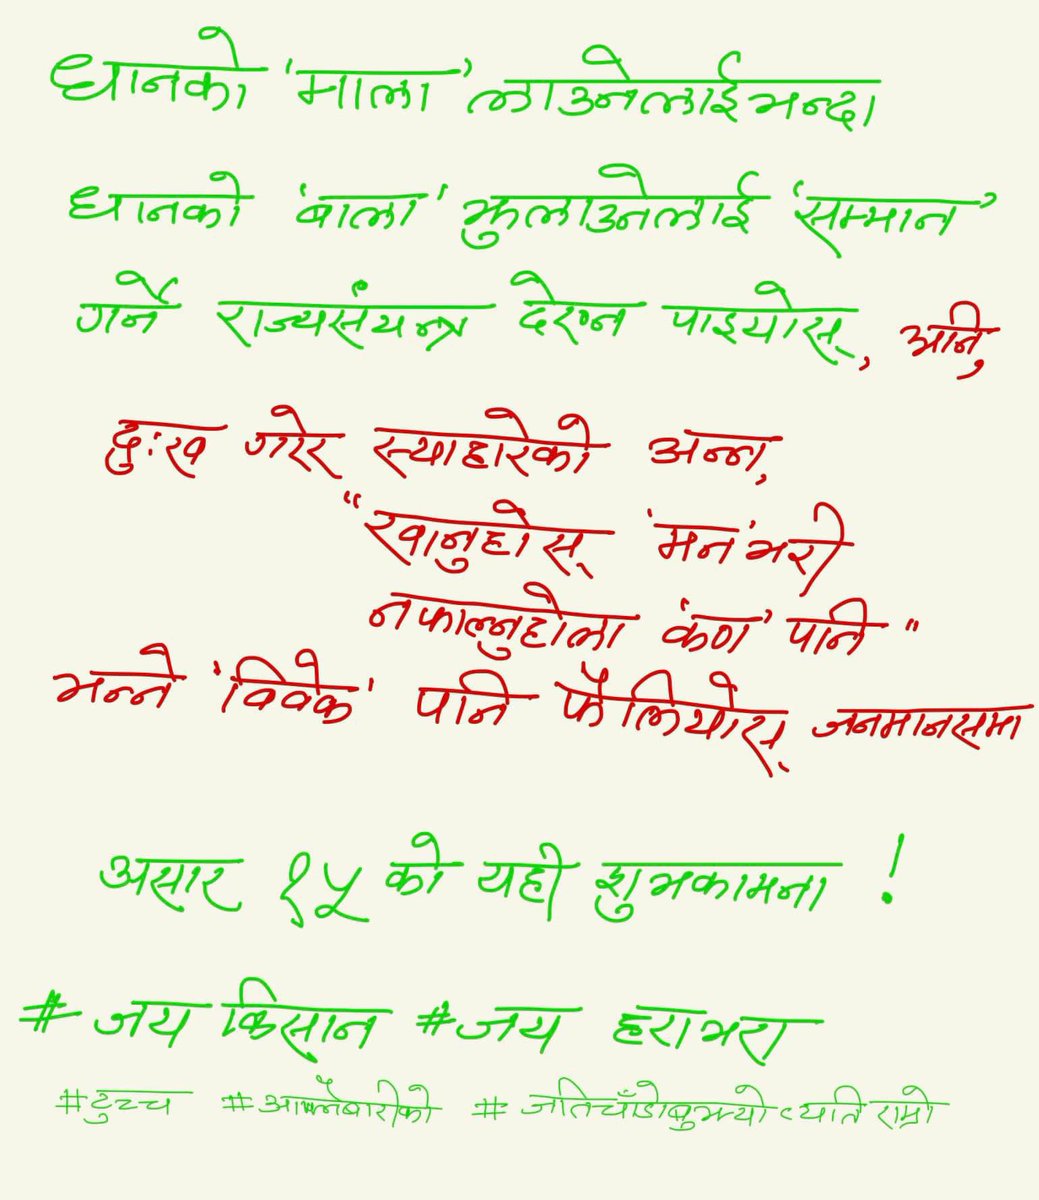 धानको 'माला' लाउनेलाईभन्दा
धानको 'बाला' झुलाउनेलाई 'सम्मान'
गर्ने राज्यसंयन्त्र देख्न पाइयोस्, अनि,
दुःख गरेर स्याहारेको अन्न,
"खानुहोस् 'मन'भरी
नफाल्नुहोला 'कण' पनि"
भन्ने 'विवेक' पनि फैलियोस् जनमानसमा
असार १५ को यही शुभकामना !
# जय किसान # जय हराभरा
#टुच्च #आफ्नैबारीको # जतिचाँडोबुझ्यो त्यति राम्रो